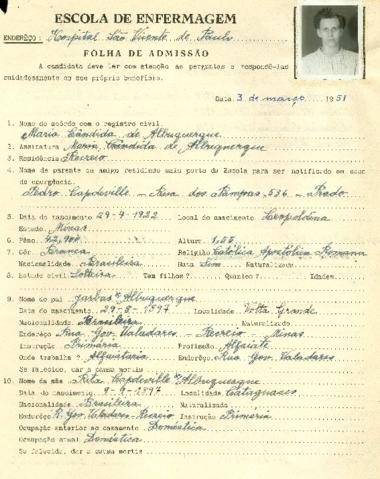 ESCOLA DE ENFERMAGEM
ENDERÊÇO: Hospital São Vicente de Paulo
FOLHA DE ADMISSÃO
A candidata deve ler com atenção as perguntas e respondê-las
cuidadosamente em seu próprio benefício.
Data 3 de março 1951
1. Nome de acôrdo com o registro civil.
Maria Cândida de Albuquerque
2. Assinatura Maria Cândida de Albuquerque
3. Residência Recreio
4. Nome de parente ou amigo residindo mais perto da Escola para ser notificado em caso
de emergência.
Pedro Capdeville - Rua dos Pampas, 536 - Prado
5. Data do nascimento 29-4-1922 Local do nascimento Leopoldina
Estado Minas
6. Pêso 42,900 Altura 1,55
7. Côr Branca Religião Católica Apostólica Romana
Nacionalidade Brasileira Nata Sim Naturalizada
8. Estado civil Solteira Tem filhos? Quantos? Idades
9. Nome do pai Jarbas Albuquerque
Data do nascimento 29-8-1897 Localidade Volta Grande
Nacionalidade Brasileira Naturalizado
Enderêço Rua Gov. Valadares - Recreio - Minas
Instrução Primária Profissão Alfaiate
Onde trabalha? Alfaiataria Enderêço Rua Gov. Valadares
Se falecido, dar a causa mortis
10. Nome da mãe Rita Capdeville Albuquerque
Data do nascimento 1897 Localidade Cataguases
Nacionalidade Brasileira Naturalizada
Enderêço R. Gov. Valadares-Recreio Instrução Primária
Ocupação anterior ao casamento Doméstica
Ocupação atual Doméstica
Se falecida, dar a causa mortis